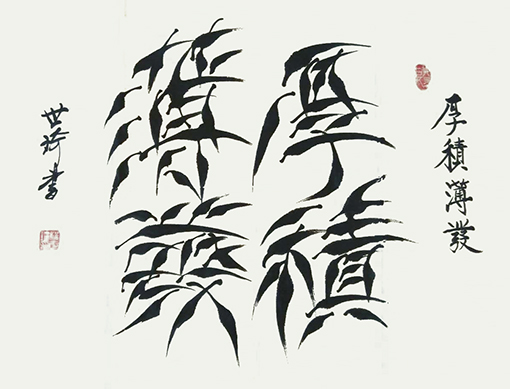 厚積薄發
厚積
薄發
世琦書